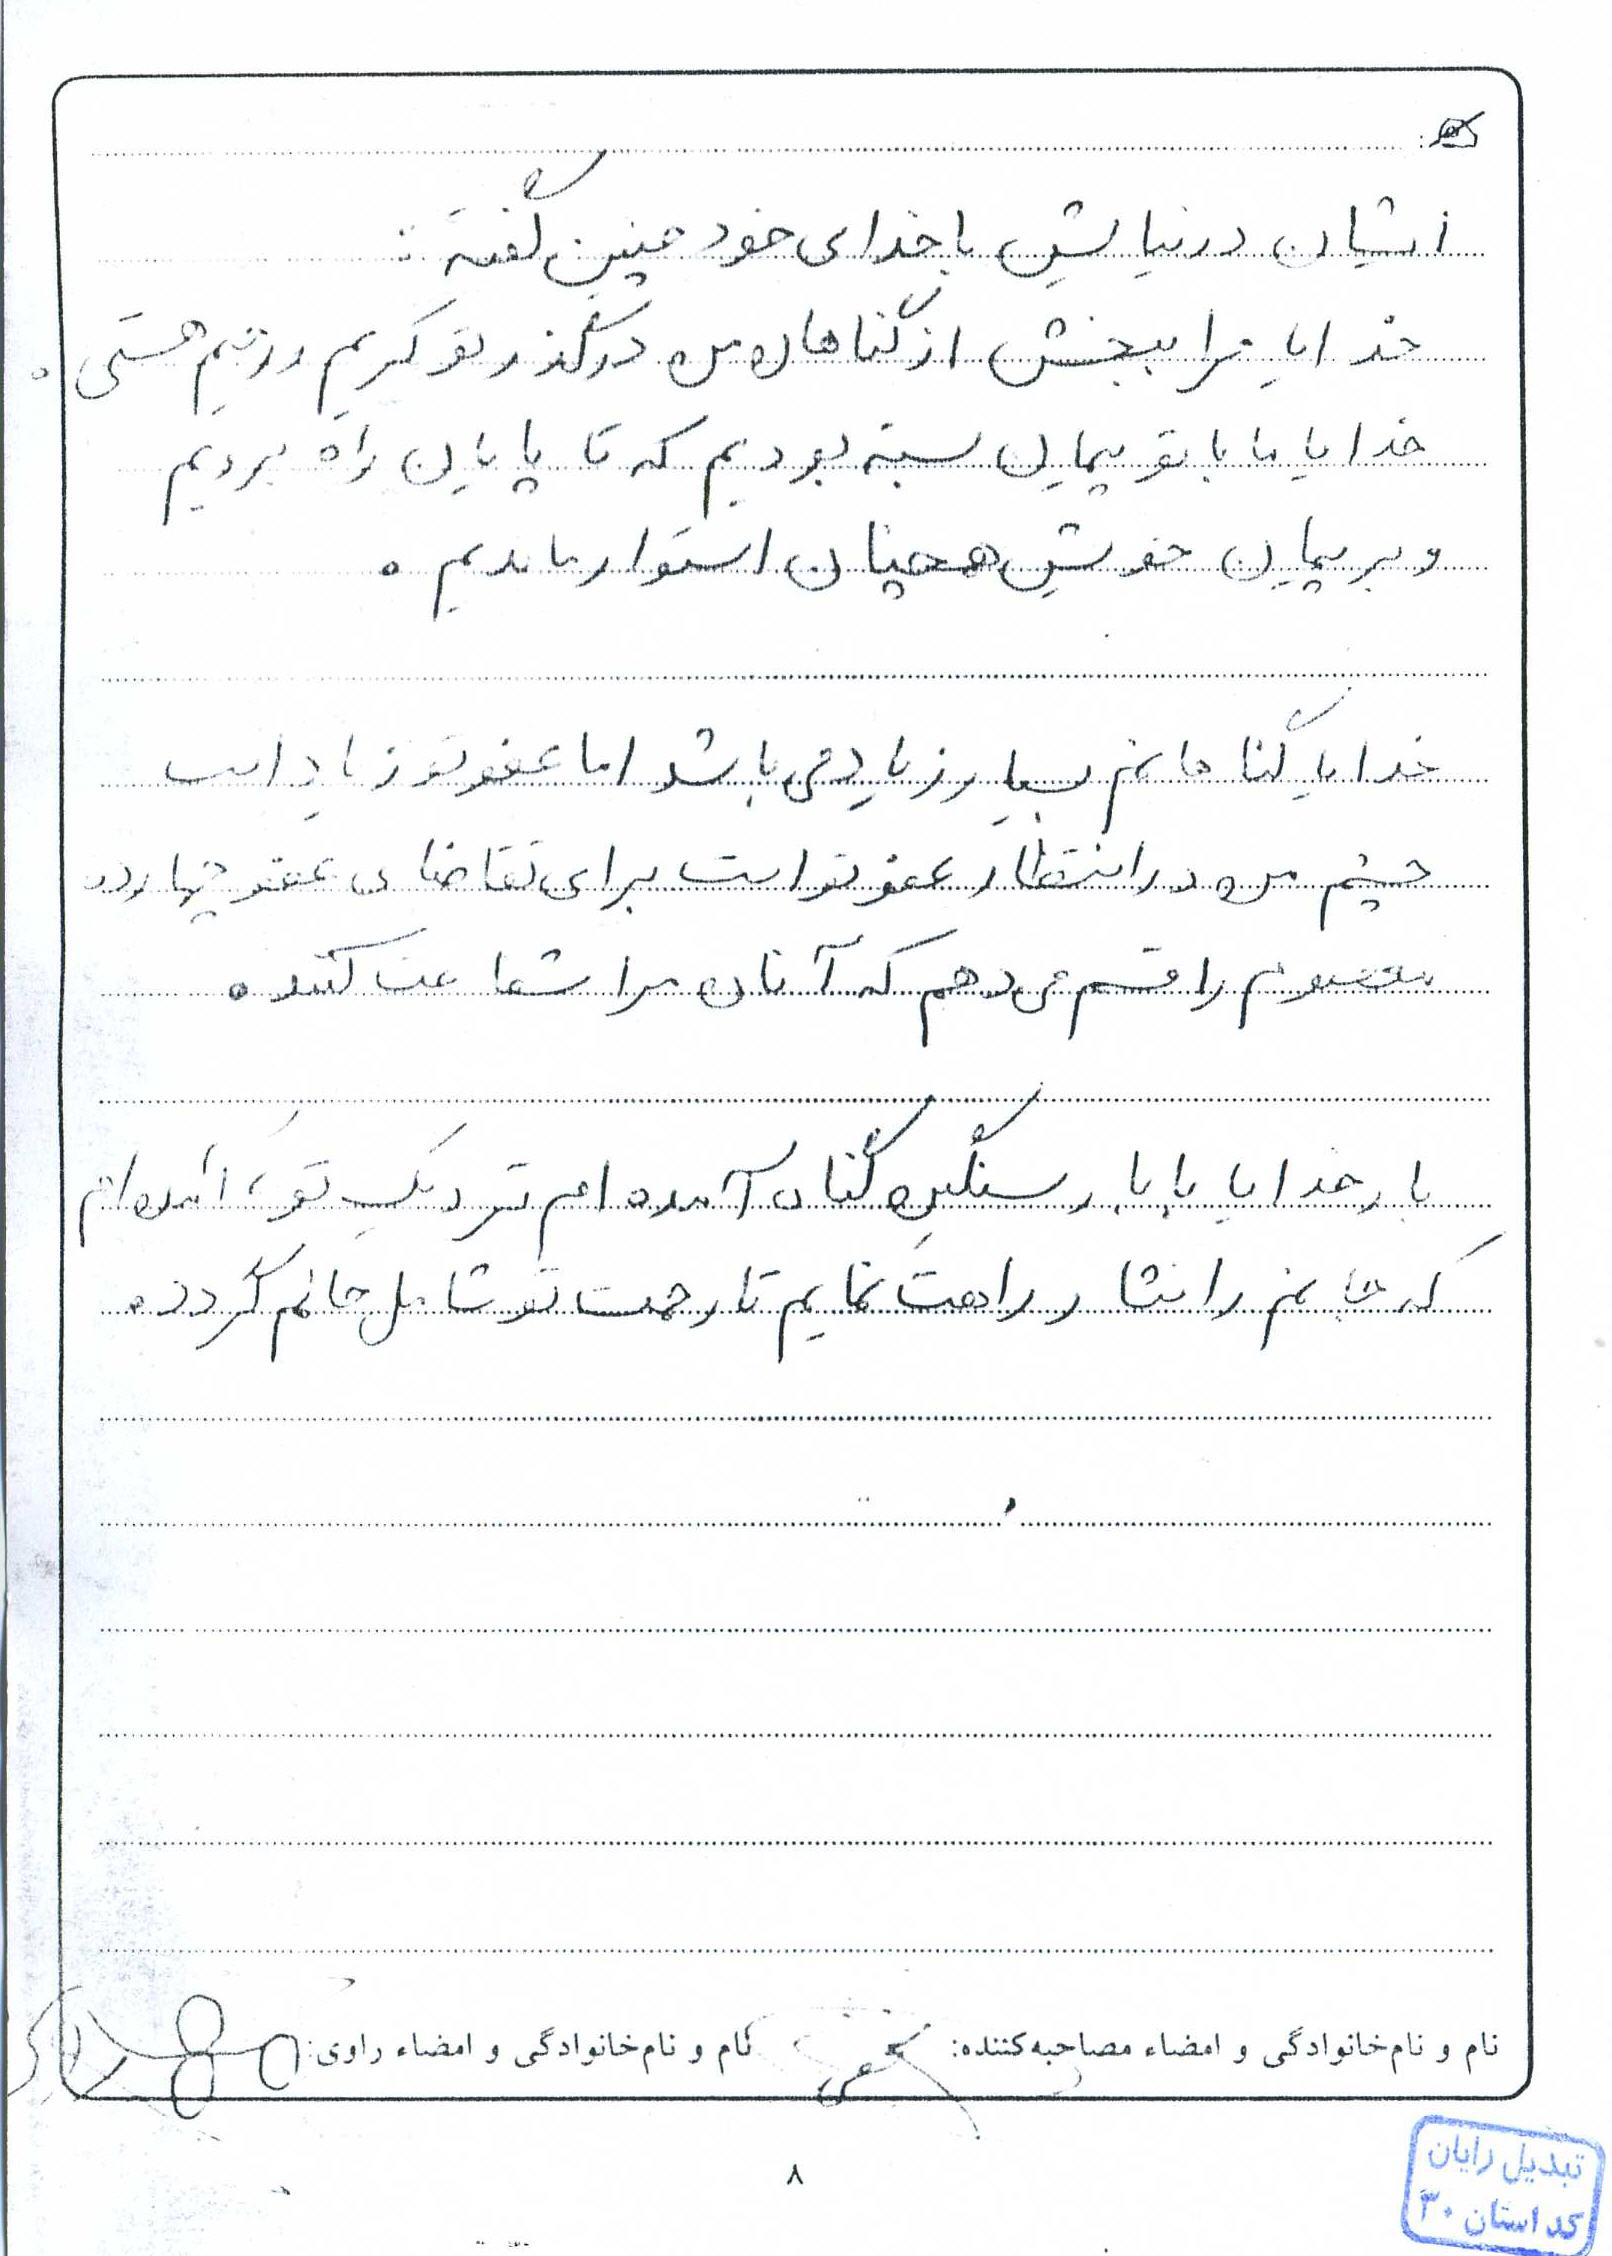 ایشان در نیایش با خدای خود چنین گفته :
خدایا مرا ببخش از گناهان من درگذر تو کریم و رحیم هستی .
خدایا ما با تو پیمان بسته بودیم که تا پایان راه برویم
و بر پیمان خویش همچنان استوار ماندیم .
خدایا گناهانم بسیار زیاد می باشد اما عفو تو زیاد است
چشم من در انتظار عفو تو است برای تقاضای عفو چهارده
معصوم را قسم می دهم که آنان مرا شفاعت کنند .
بار خدایا با بار سنگین گناه آمده ام نزدیک تو ، آمده ام
که جانم را نثار راهت نمایم تا رحمت تو شامل حالم گردد .
نام و نام‌خانوادگی و امضاء مصاحبه‌کننده: نام و نام‌خانوادگی و امضاء راوی:
۸
تبدیل رایان
کد استان ۳۰